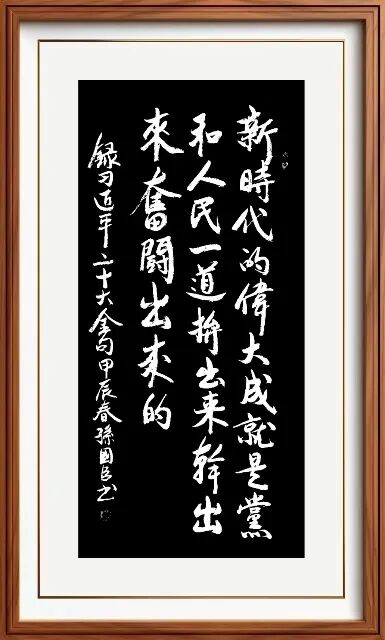 新時代的偉大成就是黨
和人民一道拚出来幹出
來奮鬪出来的
録习近平二十大金句甲辰春孫國书